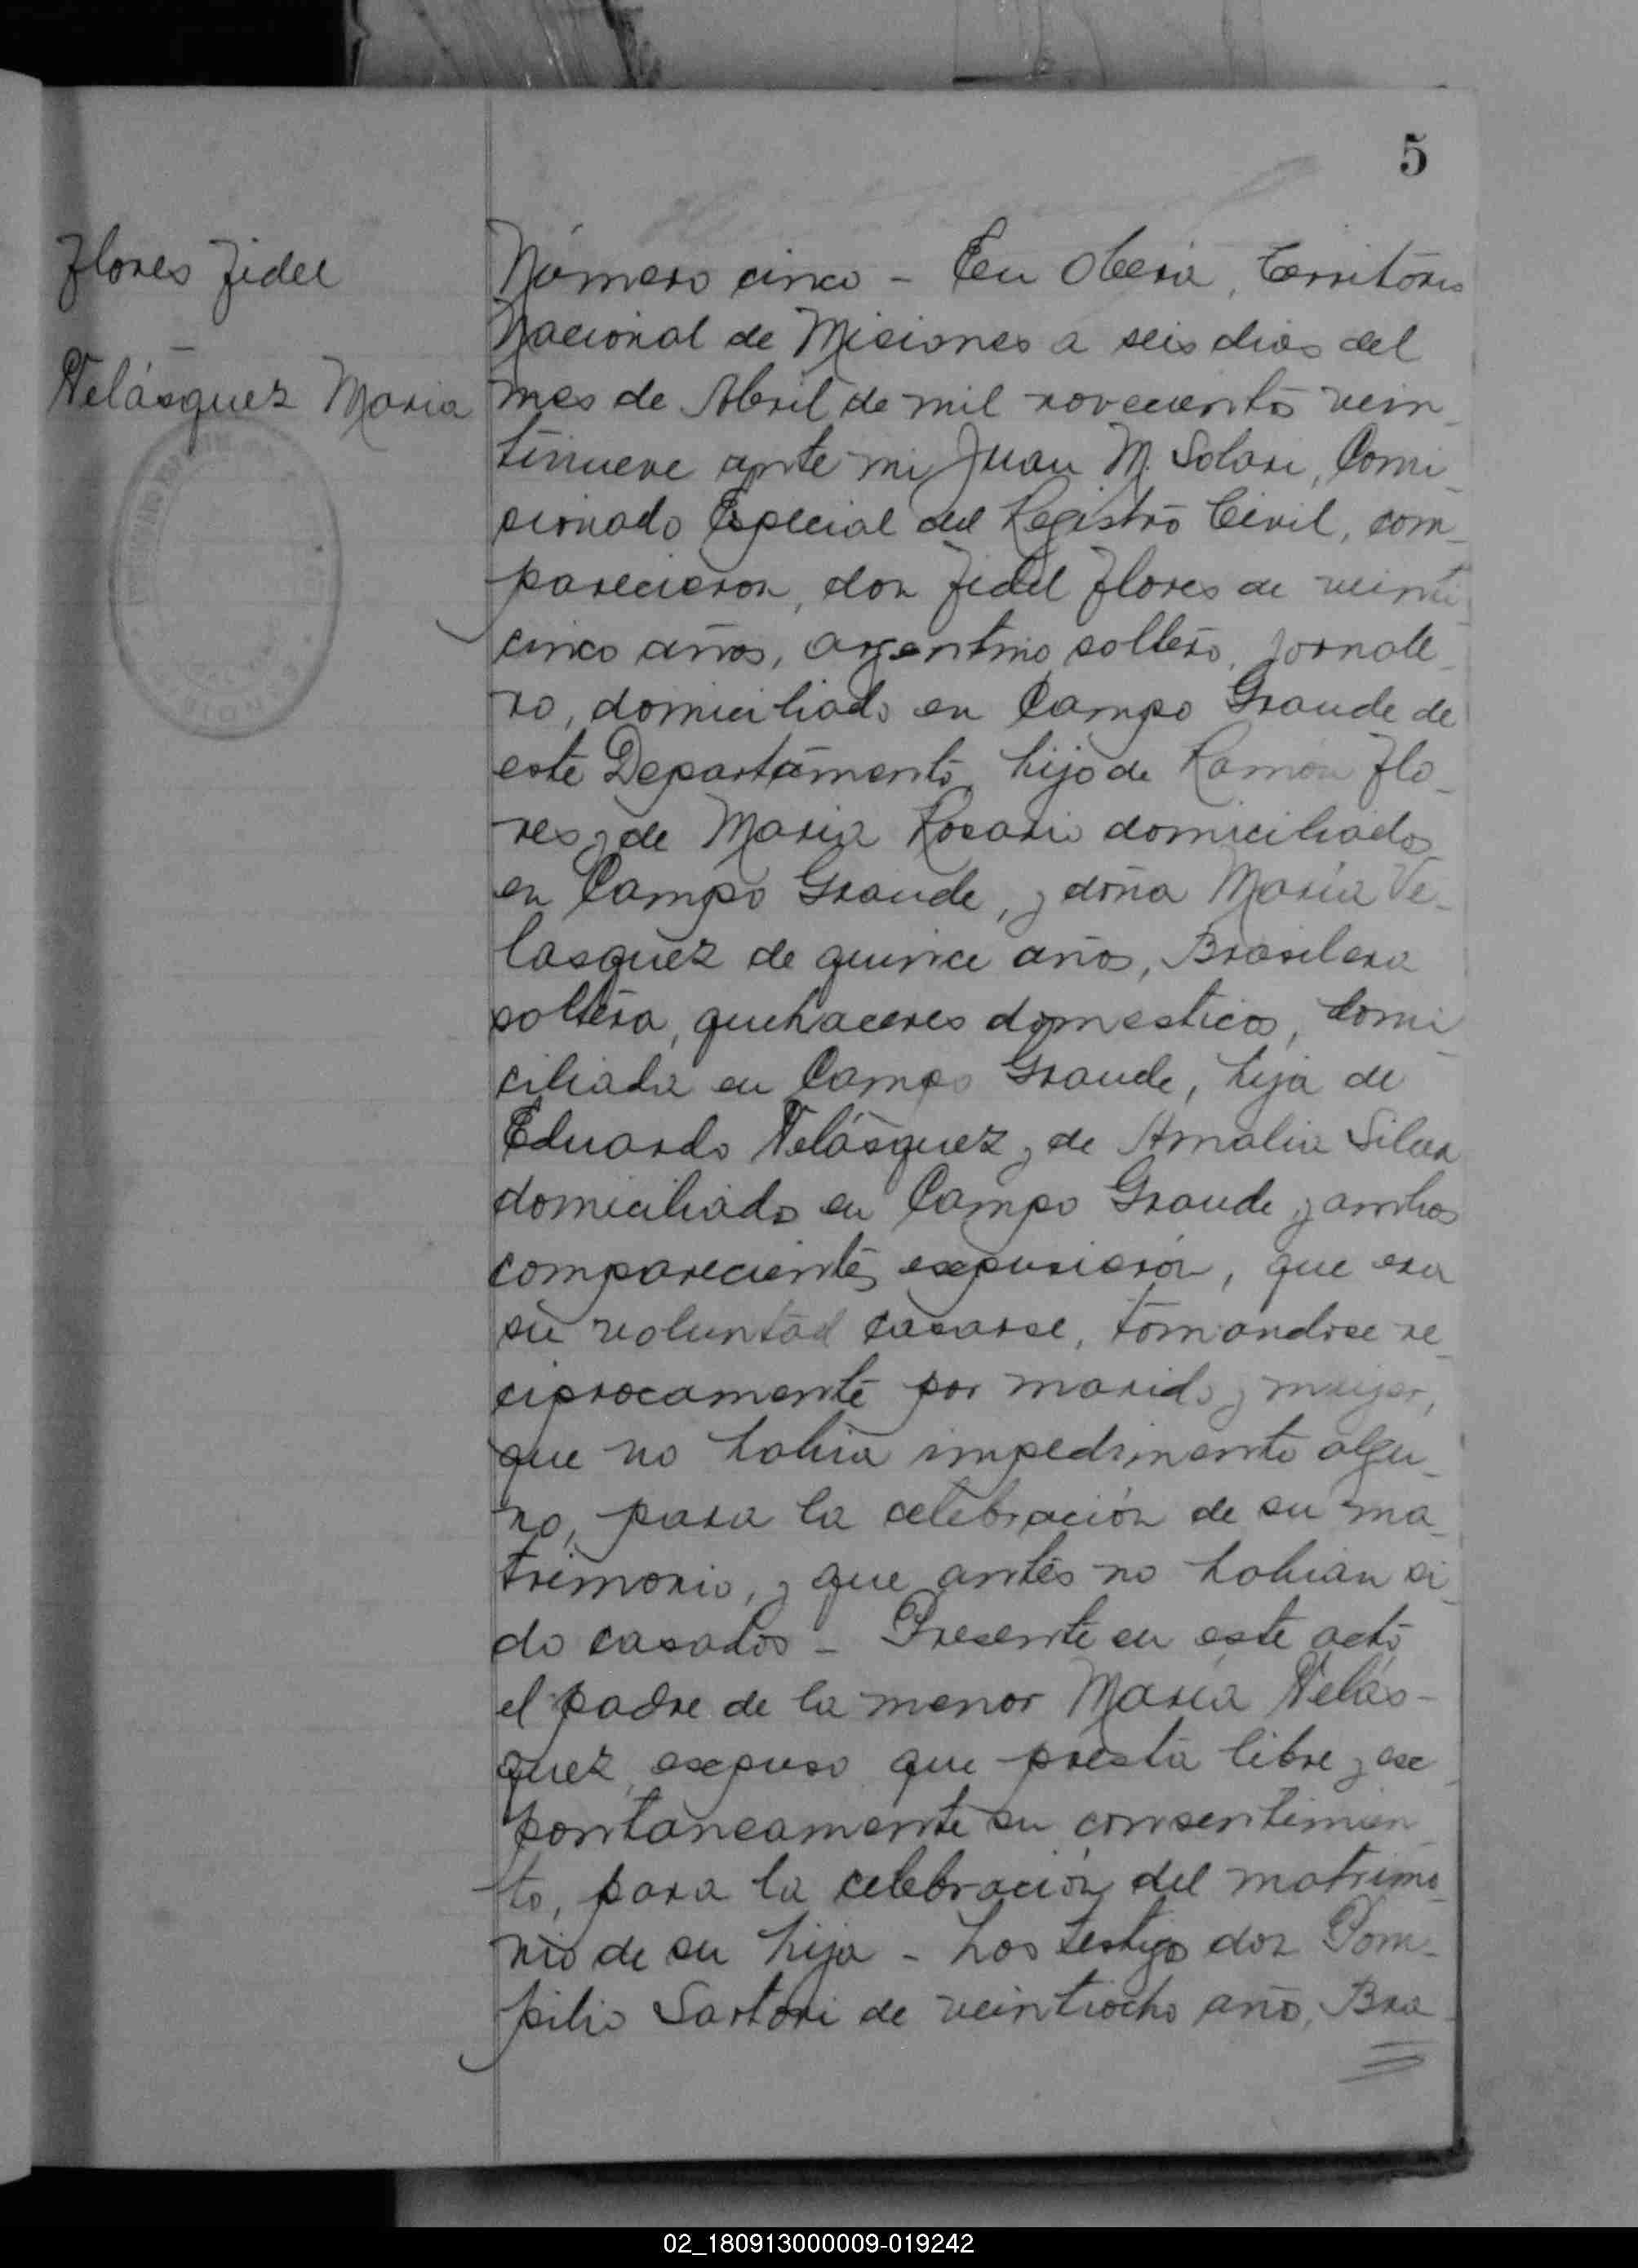 5
Flores Fidel
Velásquez Maria
Número cinco - En Oberá, Territorio
Nacional de Misiones a seis dias del
mes de Abril de mil novecientos vein_
tinueve ante mi Juan M. Solari, Comi_
sionado Especial del Registro Civil, com_
parecieron, don Fidel Flores de veinti_
cinco años, argentino, soltero, jornale_
ro, domiciliado en Campo Grande de
este Departamento, hijo de Ramón Flo_
res y de Maria Rosario domiciliados
en Campo Grande, y doña María Ve_
lasquez de quince años, Brasilera
soltera, quehaceres domesticos, domi_
ciliada en Campo Grande, hija de
Eduardo Velásquez y de Amalia
domiciliados en Campo Grande y ambos
comparecientes expusieron, que era
su voluntad casarse, tomandose re_
ciprocamente por marido y mujer,
que no habia impedimento algu_
no, para la celebración de su ma_
trimonio, y que antes no habian si_
do casados - Presente en este acto
el padre de la menor María Velás-
quez, expuso que presta libre y es_
pontaneamente su consentimien_
to, para la celebración del matrimo_
nio de su hija - Los testigos don Pom_
pilio Sartori de veintiocho años, Bra_
02_180913000009-019242